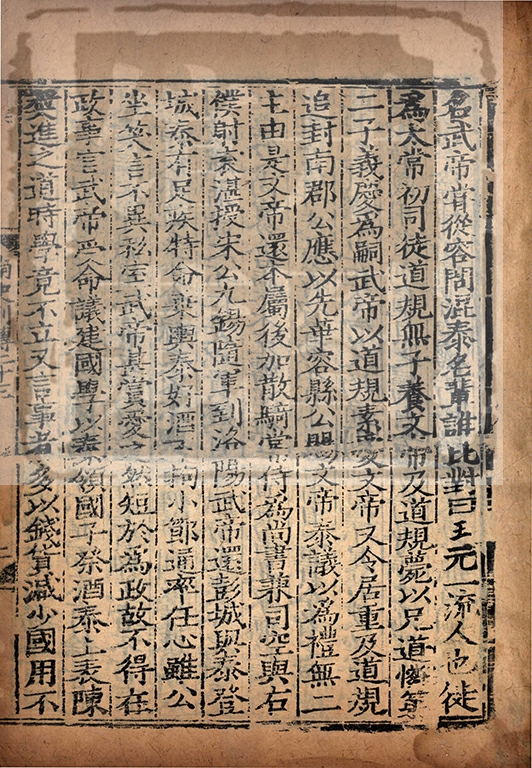 名武帝甞從容問混泰名輩誰比對曰王元一流人也徙
爲太常初司徒道規無子養文帝及道規薨以兄道憐第
二子義慶爲嗣武帝以道規素愛文帝又令居重及道規
追封南郡公應以先華容縣公賜文帝泰議以爲禮無二
主由是文帝還本屬後加散騎常侍爲尚書兼司空與右
僕射袁湛授宋公九錫隨軍到洛陽武帝還彭城與泰登
城泰有足疾特命乘輿泰好酒不拘小節通率任心雖公
坐笑言不異私室武帝甚賞愛之然短於爲政故不得在
政事官武帝受命議建國學以泰領國子祭酒泰上表陳
奬進之道時學竟不立又言事者多以錢貨減少國用不
南史列傳